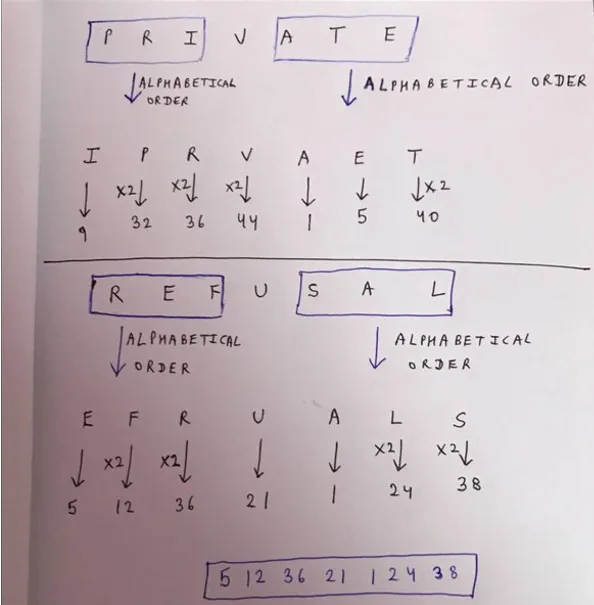 P R I V A T E
ALPHABETICAL ORDER ALPHABETICAL ORDER
I P R V A E T
x2 x2 x2 x2
9 32 36 44 1 5 40
R E F U S A L
ALPHABETICAL ORDER ALPHABETICAL ORDER
E F R U A L S
x2 x2 x2 x2
5 12 36 21 1 24 38
5 12 36 21 1 24 38